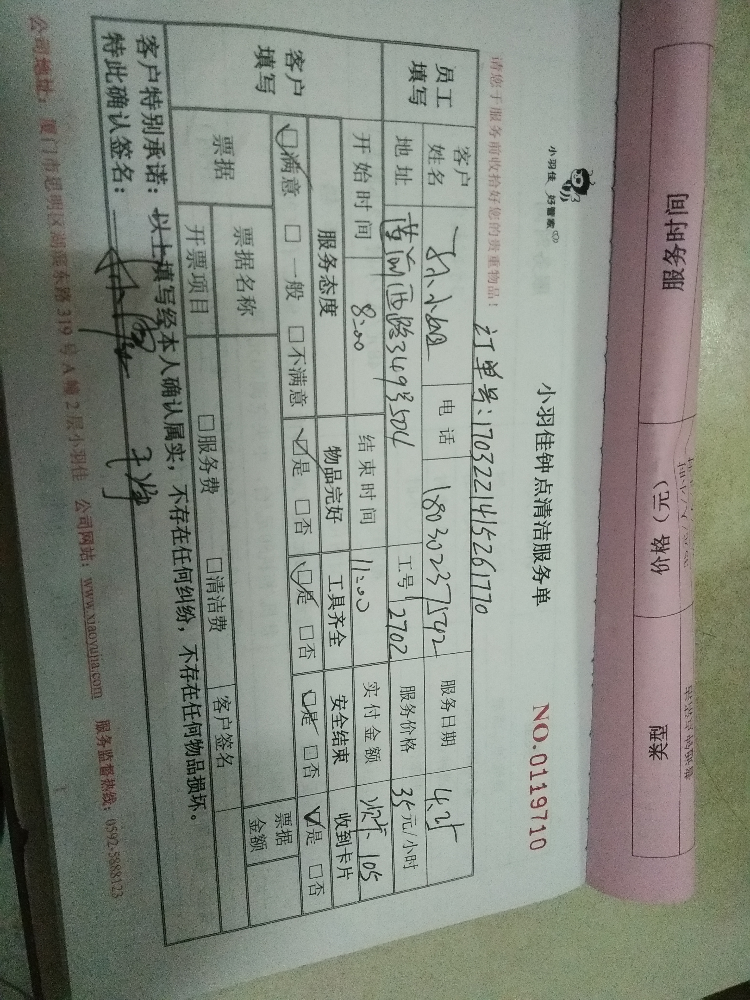 服务时间
价格（元）
类型
小羽佳
好管家
小羽佳钟点清洁服务单
NO.0119710
请您于服务前收拾好您的贵重物品！
订单号：1703221415261770
员工填写
客户姓名
孙小姐
电话
18030237542
服务日期
4.25
地址
莆前西路349号504
工号
2702
服务价格
35元/小时
开始时间
8:00
结束时间
11:00
实付金额
105
客户填写
服务态度
物品完好
工具齐全
安全结束
收到卡片
满意
一般
不满意
是
否
是
否
是
否
是
否
票据
票据名称
票据金额
开票项目
服务费
清洁费
客户签名
客户特别承诺：以上填写经本人确认属实，不存在任何纠纷，不存在任何物品损坏。
特此确认签名：
公司地址：厦门市思明区湖滨东路319号A幢2层小羽佳 公司网站：www.xiaoyujia.com 服务监督热线：0592-5888123